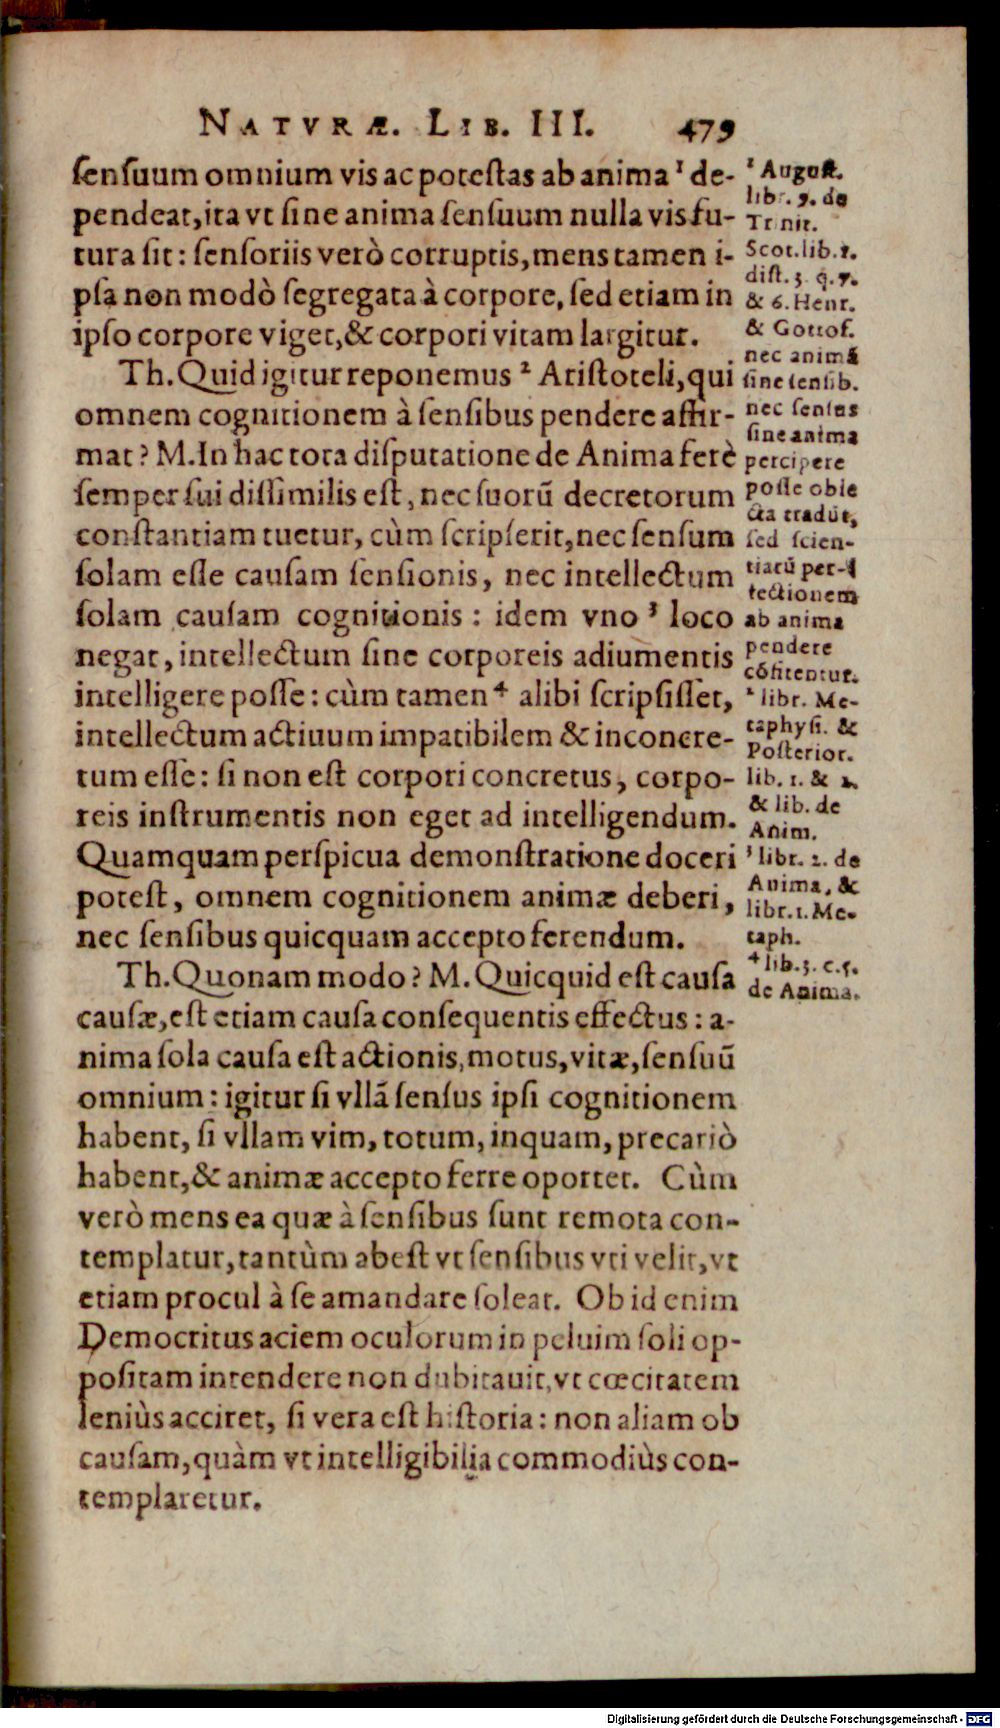 NATVRÆ. LIB. III. 479
sensuum omnium vis ac potestas ab anima ¹ de-
pendeat, ita vt sine anima sensuum nulla vis fu-
tura sit: sensoriis verò corruptis, mens tamen i-
psa non modò segregata à corpore, sed etiam in
ipso corpore viget, & corpori vitam largitur.
Th. Quid igitur reponemus ² Aristoteli, qui
omnem cognitionem à sensibus pendere affir-
mat? M. In hac tota disputatione de Anima ferè
semper sui dissimilis est, nec suorū decretorum
constantiam tuetur, cùm scripserit, nec sensum
solam esse causam sensionis, nec intellectum
solam causam cognitionis: idem vno ³ loco
negat, intellectum sine corporeis adiumentis
intelligere posse: cùm tamen ⁴ alibi scripsisset,
intellectum actiuum impatibilem & inconcre-
tum esse: si non est corpori concretus, corpo-
reis instrumentis non eget ad intelligendum.
Quamquam perspicua demonstratione doceri
potest, omnem cognitionem animæ deberi,
nec sensibus quicquam accepto ferendum.
Th. Quonam modo? M. Quicquid est causa
causæ, est etiam causa consequentis effectus: a-
nima sola causa est actionis, motus, vitæ, sensuū
omnium: igitur si vllā sensus ipsi cognitionem
habent, si vllam vim, totum, inquam, precariò
habent, & animæ accepto ferre oportet. Cùm
verò mens ea quæ à sensibus sunt remota con-
templatur, tantùm abest vt sensibus vti velit, vt
etiam procul à se amandare soleat. Ob id enim
Democritus aciem oculorum in peluim soli op-
positam intendere non dubitauit, vt cœcitatem
leniùs acciret, si vera est historia: non aliam ob
causam, quàm vt intelligibilia commodiùs con-
templaretur.
¹ August.
libr. 9. de
Trinit.
Scot. lib. 1.
dist. 3. q. 7.
& 6. Henr.
& Gottof.
nec animā
sine sensib.
nec sensus
sine anima
percipere
posse obie
cta tradūt,
sed scien-
tiarū per-
fectionem
ab anima
pendere
cōfitentur.
² libr. Me-
taphysi. &
Posterior.
lib. 1. & 2.
& lib. de
Anim.
³ libr. 2. de
Anima, &
libr. 1. Me-
taph.
⁴ lib. 3. c. 5.
de Anima.
Digitalisierung gefördert durch die Deutsche Forschungsgemeinschaft - DFG